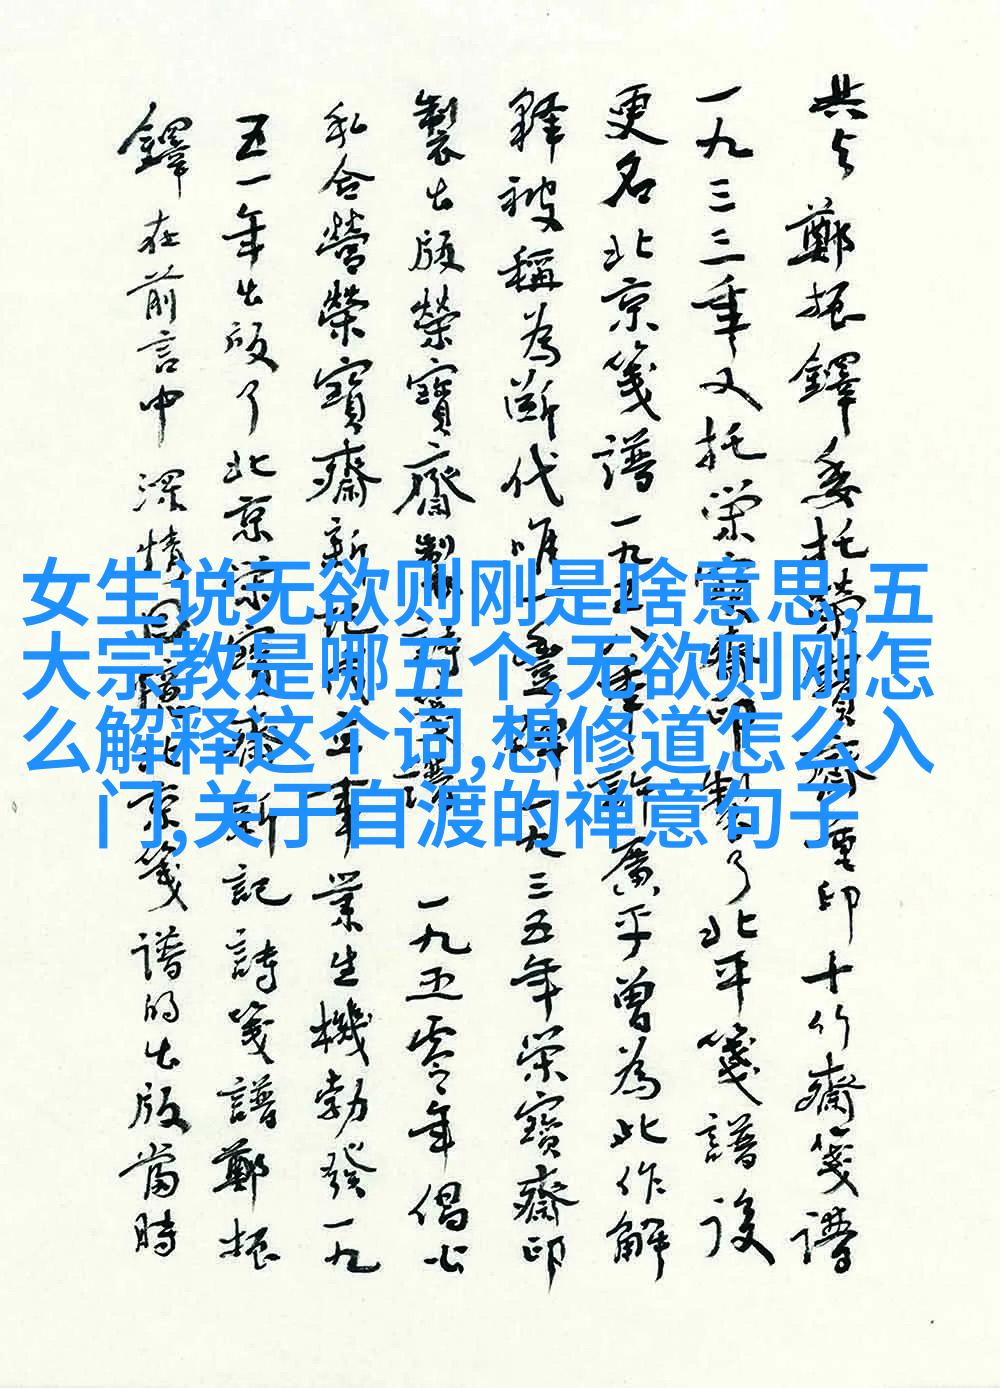 共与鄭振鐸委托榮寶齋重印十竹齋箋譜
一九三三年又托榮寶齋印製了北平箋譜後
更名北京箋譜一九五八年許廣平曾為此作解
釋被稱為断代唯一豐碑一九三五年榮寶齋印
製出版榮寶齋製詩箋譜一九五零年倡公
私合營榮寶齋新記開立事業生機勃發一九
五一年出版了北京榮寶齋新記詩箋譜鄭振
鐸在前言中深情回憶北京箋譜的出版當時
女生说无欲则刚是啥意思,五
大宗教是哪五个,无欲则刚怎
么解释这个词,想修道怎么入
门,关于自渡的禅意句子